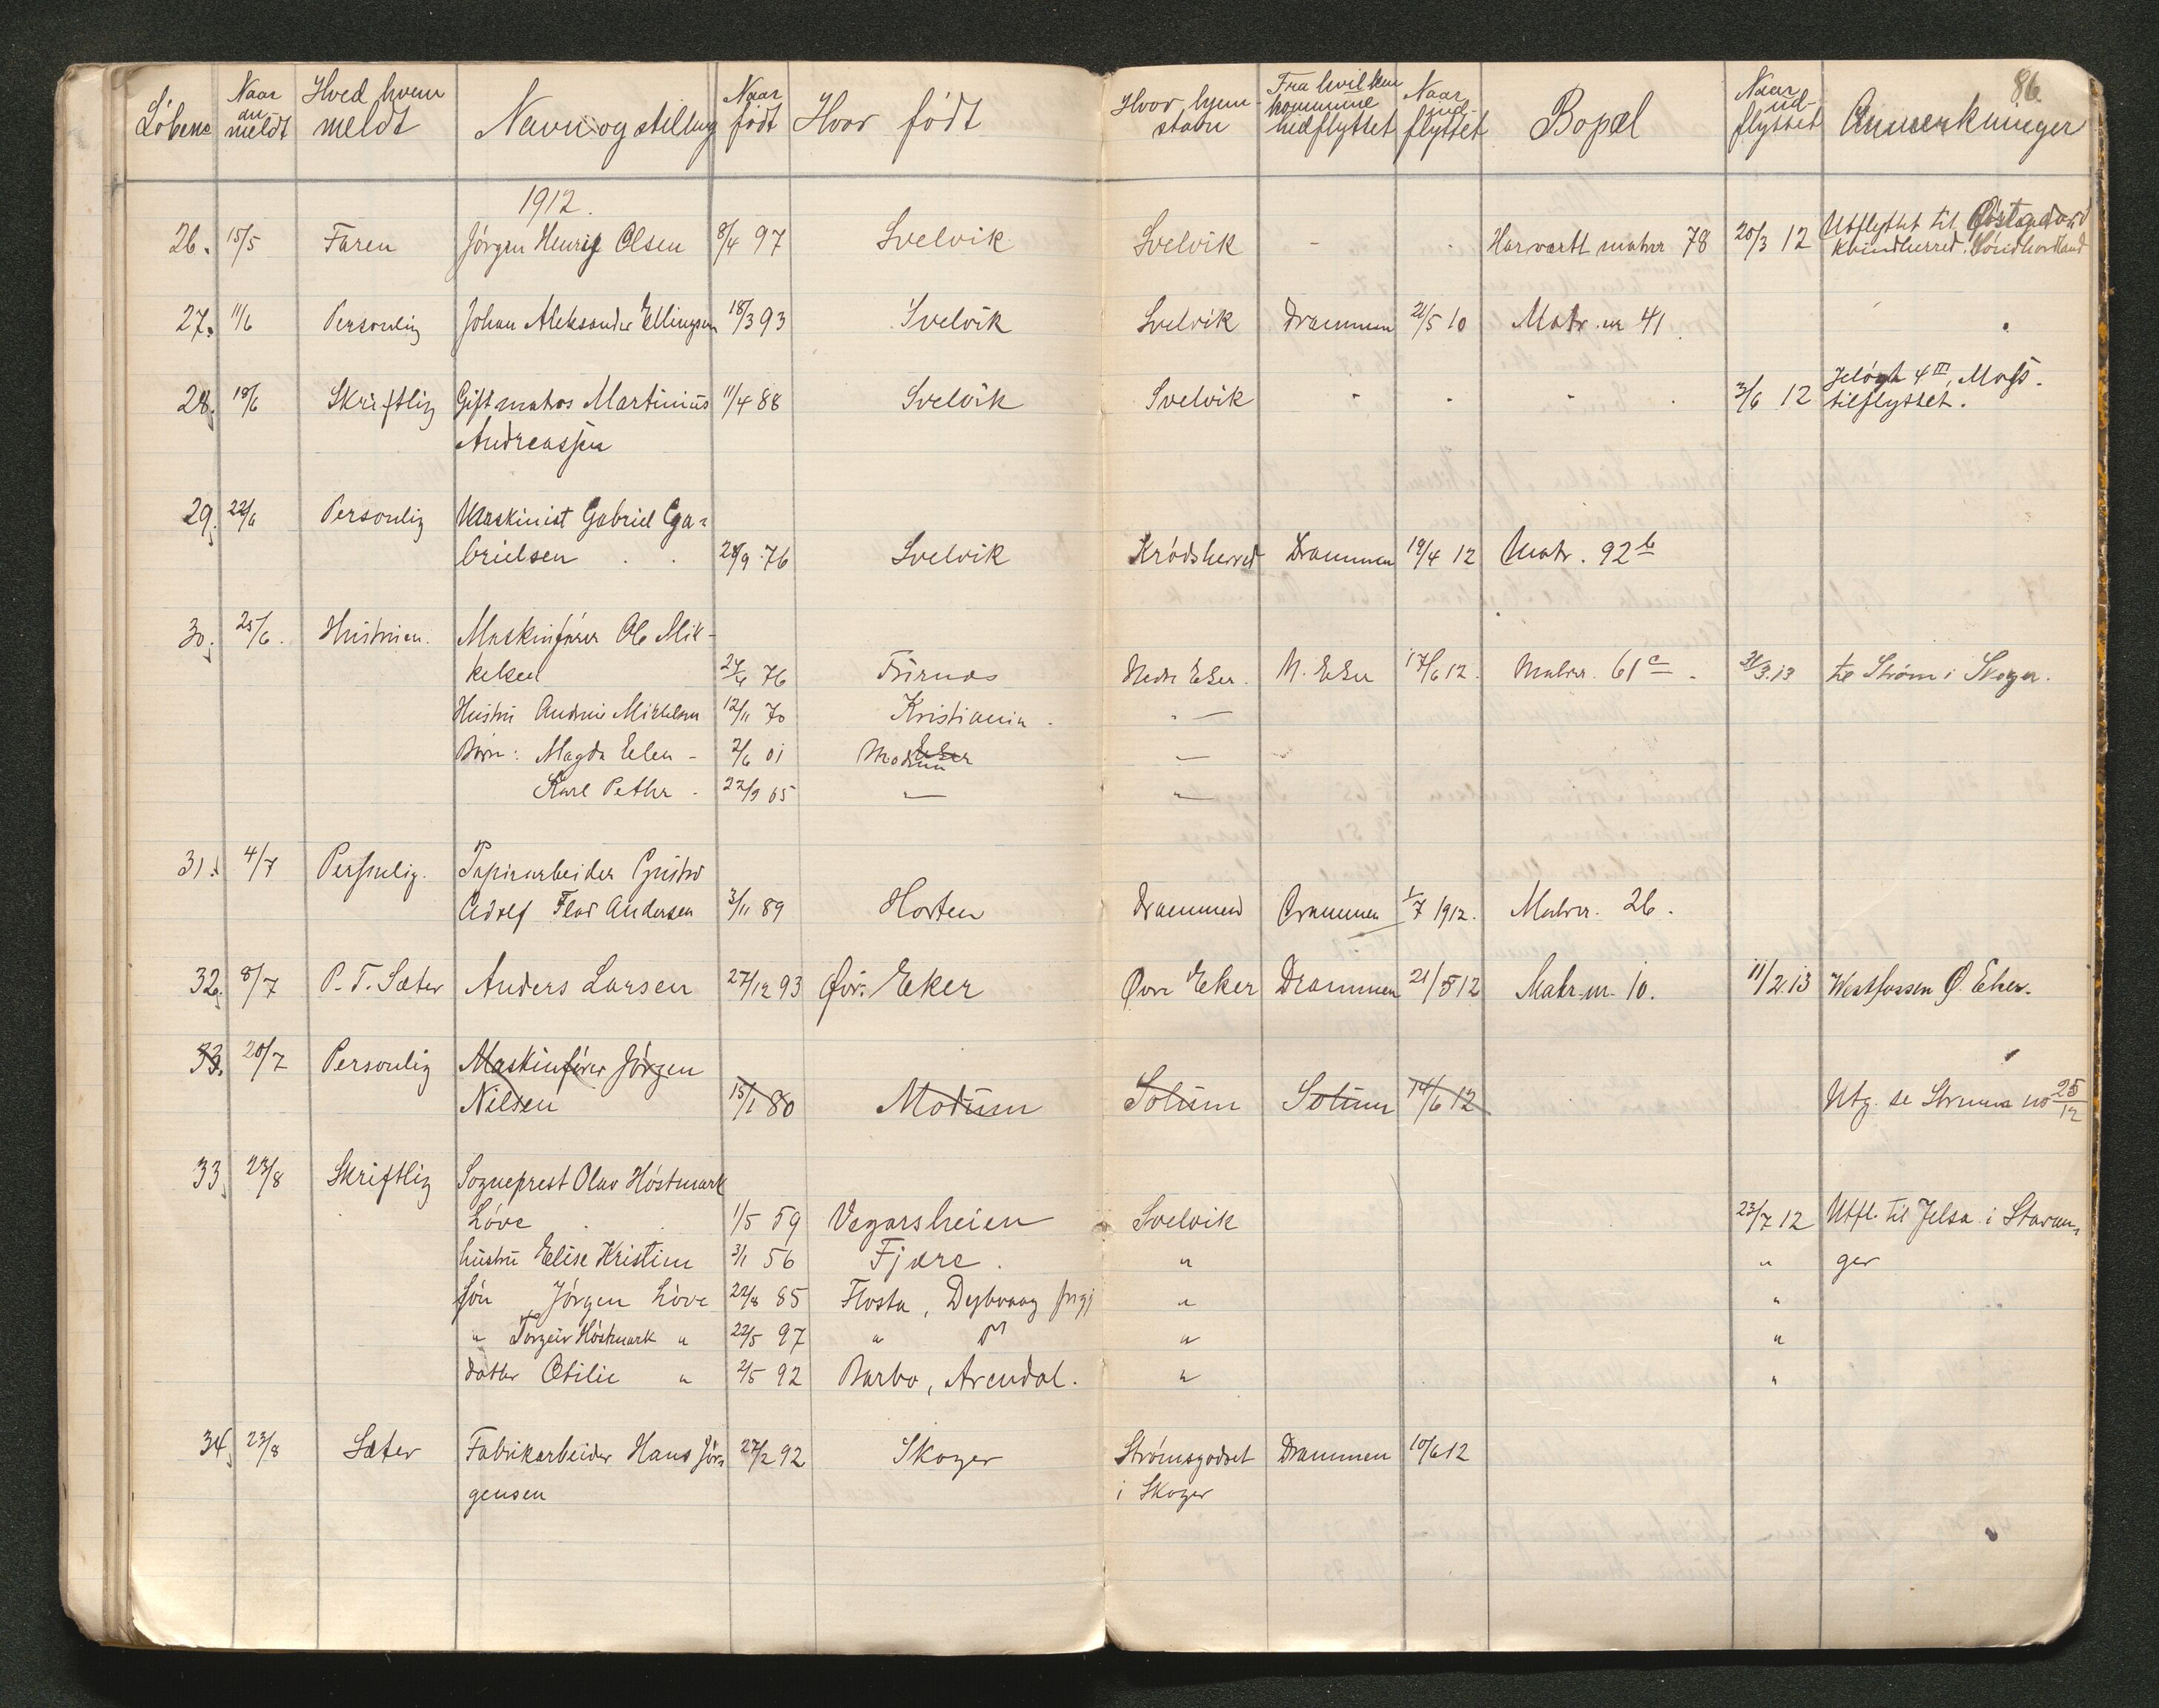 86.
Löbeno Naar anmeldt Hved hvem meldt Navn og stilling Naar födt Hvor födt Hvor hjemstavn Fra hvilken kommune hidflyttet Naar indflyttet Bopæl Naar udflyttet Anmerkninger
1912.
26. 15/5 Faren Jörgen Henrig Olsen 8/4 97 Svelvik Svelvik - - matr 78 20/3 12 Utflyttet til
Kvindherred. Söndhordland
27. 11/6 Personlig Johan Aleksander Ellingsen 18/3 93 Svelvik Svelvik Drammen 21/5 10 Matr. nr 41.
28. 18/6 Skriftlig Gift matros Martinius 11/4 88 Svelvik Svelvik - - - 3/6 12 4 III, Moss.
Andreassen tilflyttet.
29. 22/6 Personlig Maskinist Gabriel Ga=
brielsen 28/9 76 Svelvik Krödsherred Drammen 19/4 12 Matr. 92 b
30. 25/6. Hustruen. Maskinförer Ole Mik-
kelsen 76 Nedre Eker. N. Eker 17/6 12. Matr. 61 c. 31/3.13 til Ström i Skoger.
Hustru Andrine Mikkelsen 12/11 70 Kristiania. - " -
Börn: Magda Elen - 2/6 01 Modum — —
Karl Pether - 22/9 05 — "
31. 4/7 Personlig. Papirarbeider Gustav
Adolf Andersen 3/11 89 Horten Drammen Drammen 1/7 1912. Matr. 26.
32. 8/7 P. T. Sæter Anders Larsen 27/12 93 Övr: Eker Övre Eker Drammen 21/5 12 Matr. nr. 10. 11/2.13 Westfossen Ö. Eker.
33. 20/7 Personlig Maskinförer Jörgen
Nilsen 15/1 80 Modum Solum Solum 14/6 12 Utg. se no 25/12
33. 23/8 Skriftlig Sogneprest Olav Höstmark
Löve 1/5 59 Vegarsheien Svelvik 23/7 12 Utfl. til Jelsa i Stavan=
hustru Elise Kristine 3/1 56 Fjære. " " ger
sön Jörgen Löve 22/8 85 Flosta, Dybvaag prgj " "
" Torgeir Höstmark " 22/5 97 " " " "
datter Otilie " 2/5 92 Barbo, Arendal. " "
34. 23/8 Sæter Fabrikarbeider Hans Jör= 27/2 92 Skoger Strömsgodset Drammen 10/6 12
gensen i Skoger